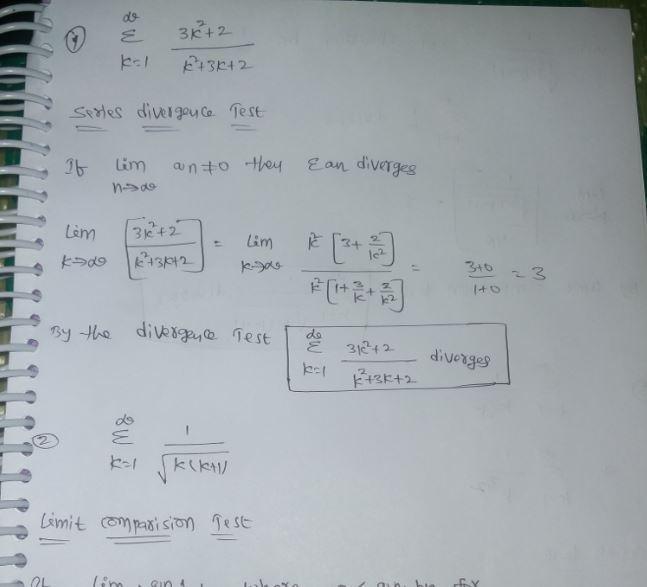 ① ∞ Σ k=1 3k²+2 / k²+3k+2
Series divergence Test
If Lim n→∞ an≠0 then Σan diverges
Lim k→∞ [3k²+2 / k²+3k+2] = Lim k→∞ k²[3+2/k²] / k²[1+3/k+2/k²] = 3+0 / 1+0 = 3
By the divergence Test ∞ Σ k=1 3k²+2 / k²+3k+2 diverges
② ∞ Σ k=1 1 / √k(k+1)
Limit comparision Test